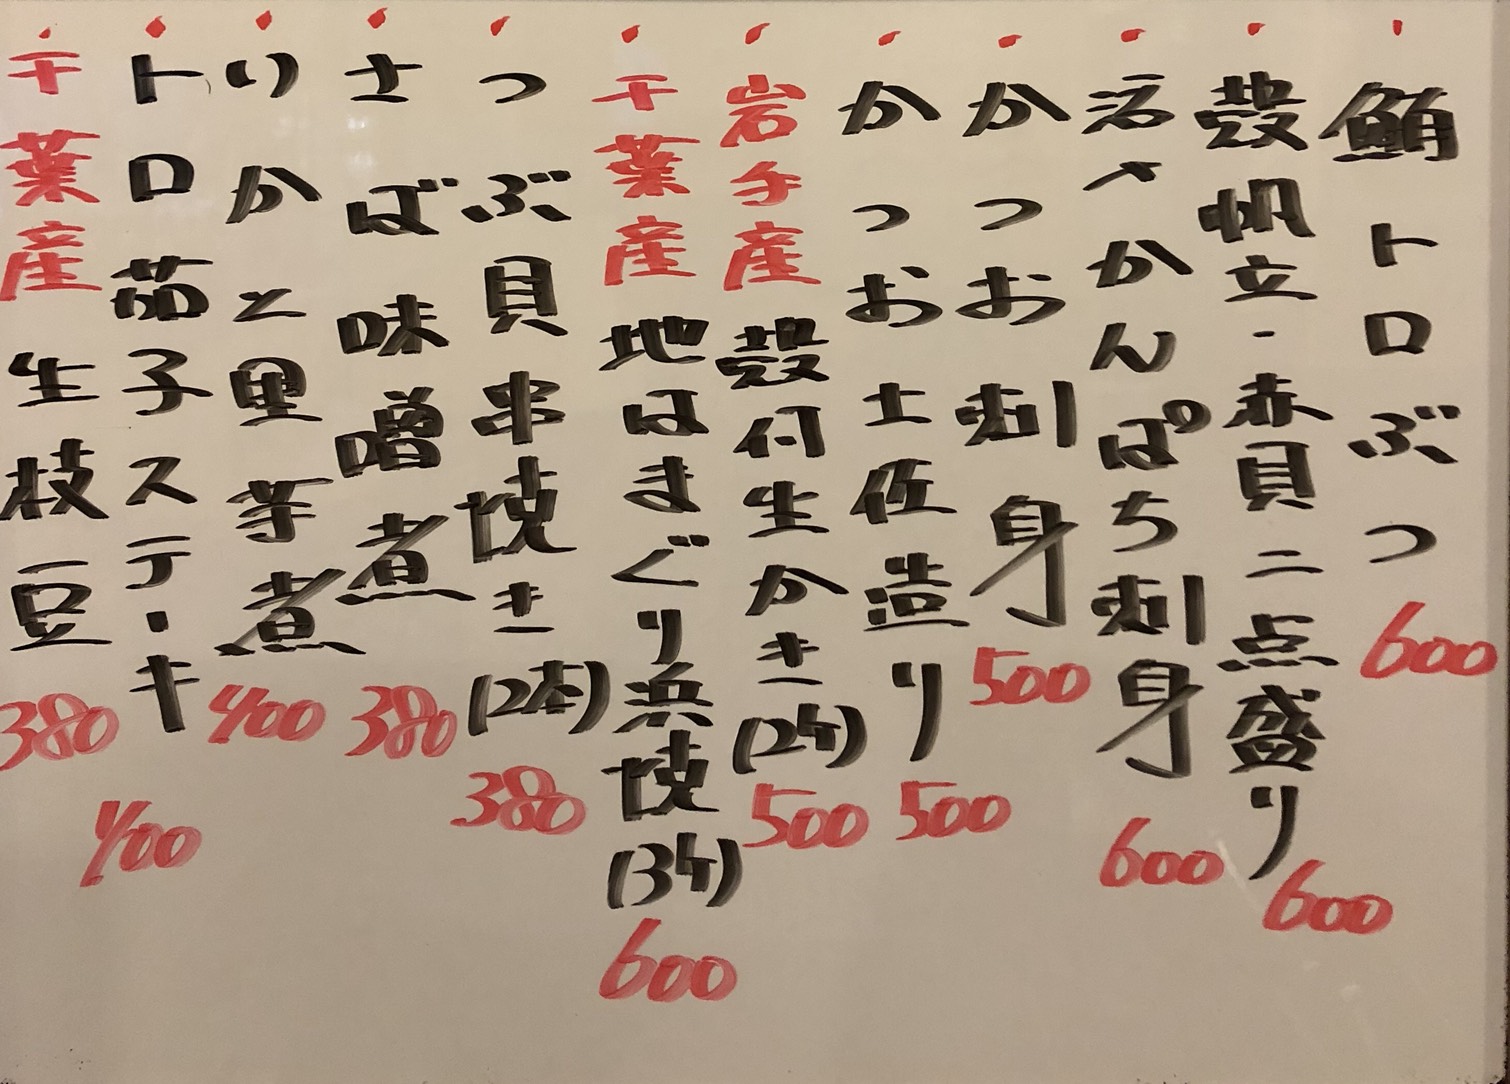 鮪トロぶつ 600
殻帆立・赤貝二点盛り 600
活〆かんぱち刺身 600
かつお刺身 500
かつお土佐造り 500
岩手産 殻付生かき(2ケ) 500
千葉産 地はまぐり浜焼(3ケ) 600
つぶ貝串焼き(2本) 380
さば味噌煮 380
いかと里芋煮 400
トロ茄子ステーキ 400
千葉産 生枝豆 380